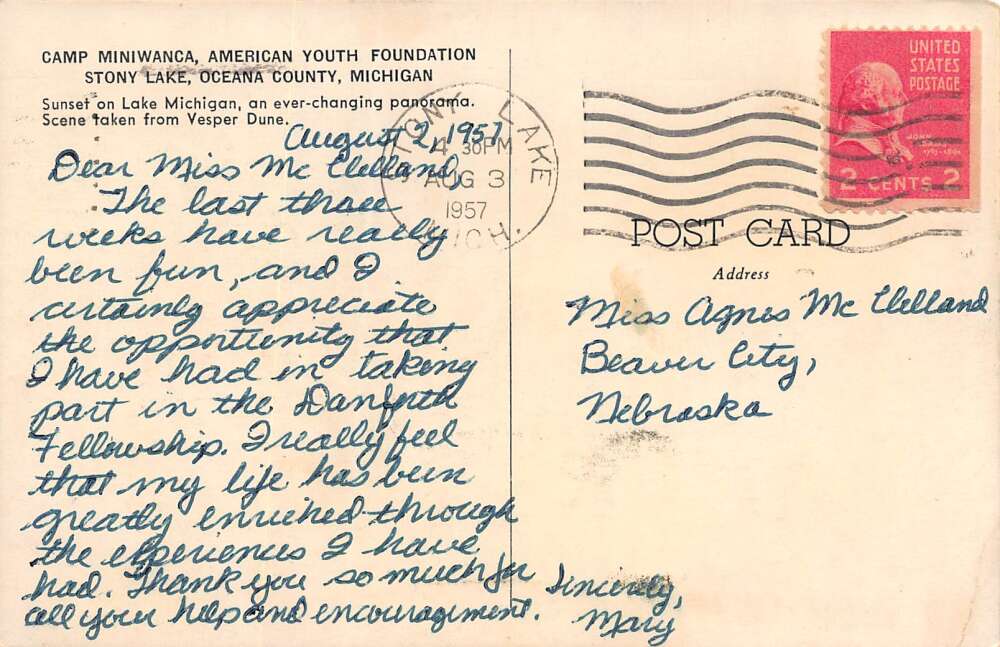 CAMP MINIWANCA, AMERICAN YOUTH FOUNDATION
STONY LAKE, OCEANA COUNTY, MICHIGAN
Sunset on Lake Michigan, an ever-changing panorama.
Scene taken from Vesper Dune.
August 2, 1957
Dear Miss McClelland,
The last three
weeks have really
been fun, and I
certainly appreciate
the opportunity that
I have had in taking
part in the Danforth
Fellowship. I really feel
that my life has been
greatly enriched through
the experiences I have
had. Thank you so much for
all your help and encouragement.
Sincerely,
Mary
STONY LAKE
4 30PM
AUG 3
1957
MICH.
UNITED
STATES
POSTAGE
JOHN
2 CENTS 2
POST CARD
Address
Miss Agnes McClelland
Beaver City,
Nebraska